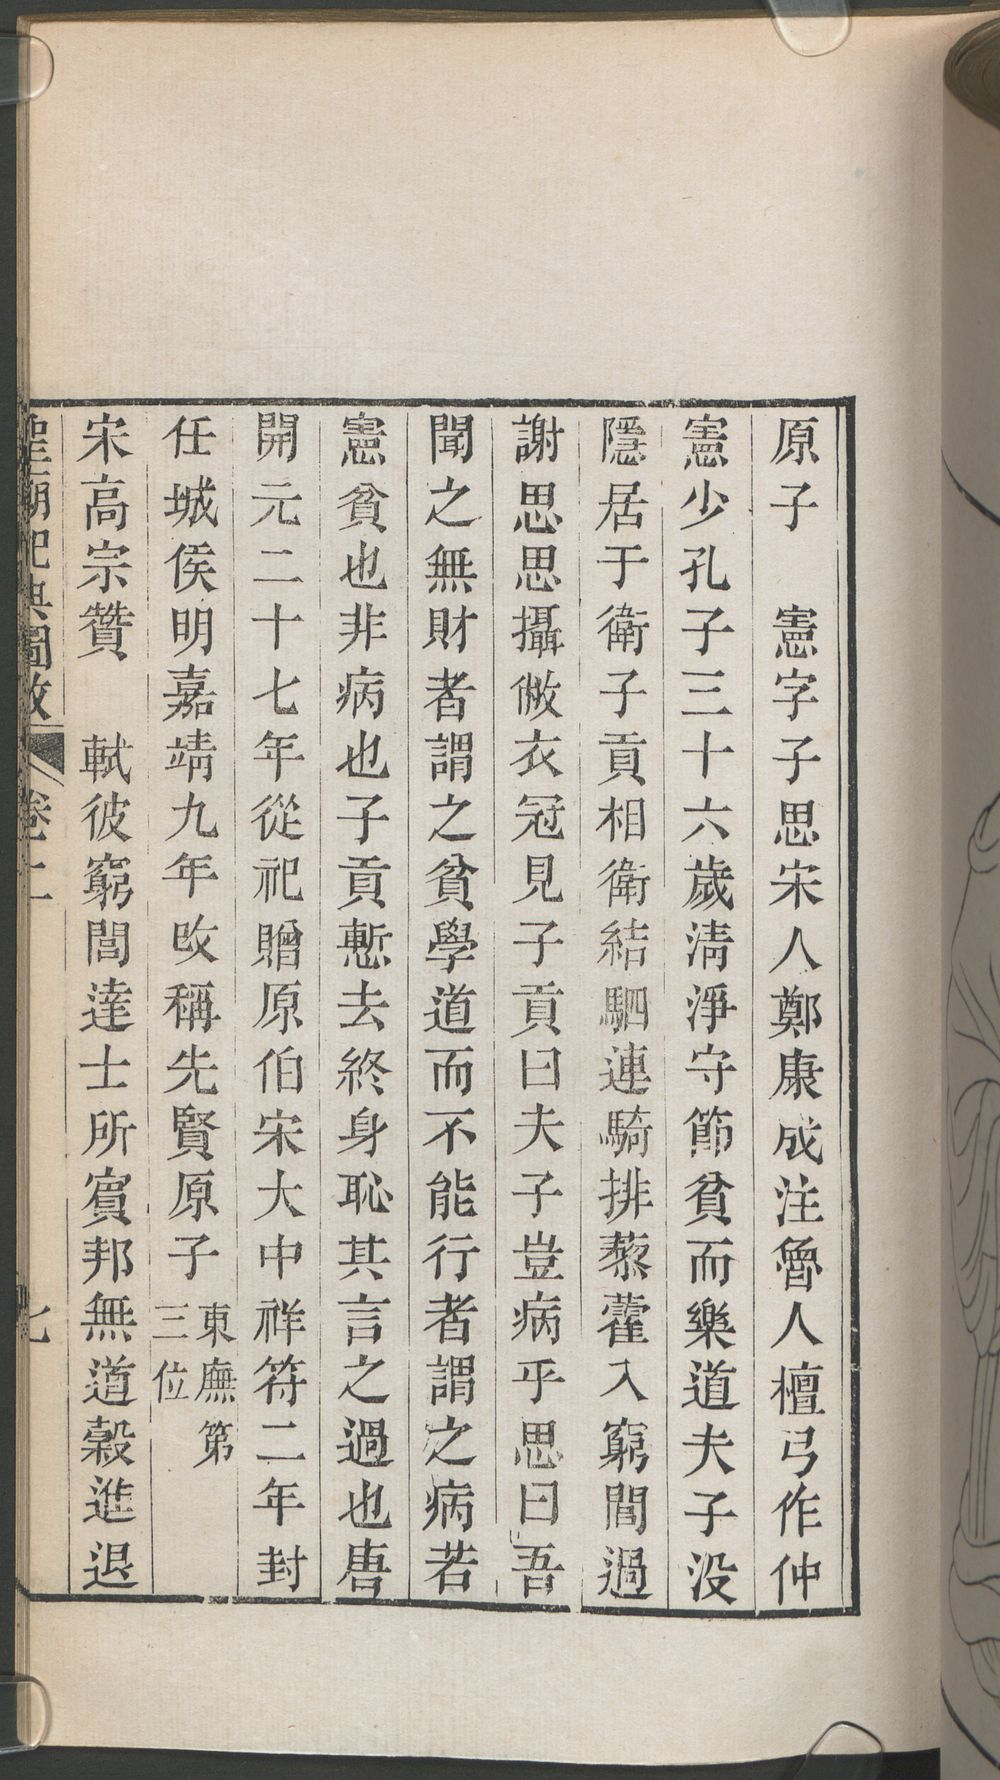 原子　憲字子思宋人鄭康成注魯人檀弓作仲
憲少孔子三十六歲淸淨守節貧而樂道夫子没
隱居于衛子貢相衛結駟連騎排藜藿入窮閻過
謝思思攝敝衣冠見子貢曰夫子豈病乎思曰吾
聞之無財者謂之貧學道而不能行者謂之病若
憲貧也非病也子貢慙去終身恥其言之過也唐
開元二十七年從祀贈原伯宋大中祥符二年封
任城侯明嘉靖九年改稱先賢原子
東廡第
三位
宋高宗贊　軾彼窮閻達士所賓邦無道穀進退
聖廟祀典圖攷
卷二
七